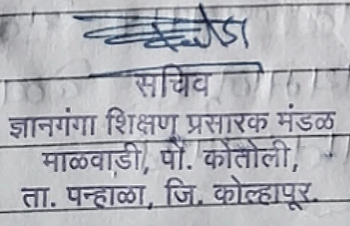 सचिव
ज्ञानगंगा शिक्षण प्रसारक मंडळ
माळवाडी, पो. कोतोली,
ता. पन्हाळा, जि. कोल्हापूर.